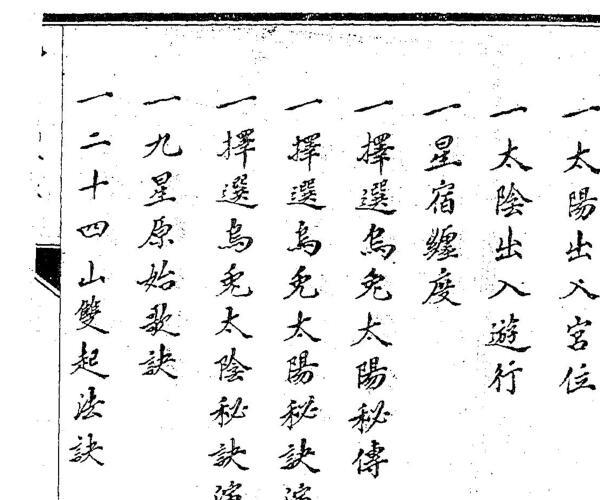 一太陽出入宮位
一太陰出入遊行
一星宿纏度
一擇選烏兔太陽秘傳
一擇選烏兔太陽秘訣
一擇選烏兔太陰秘訣
一九星原始歌訣
一二十四山雙起法訣